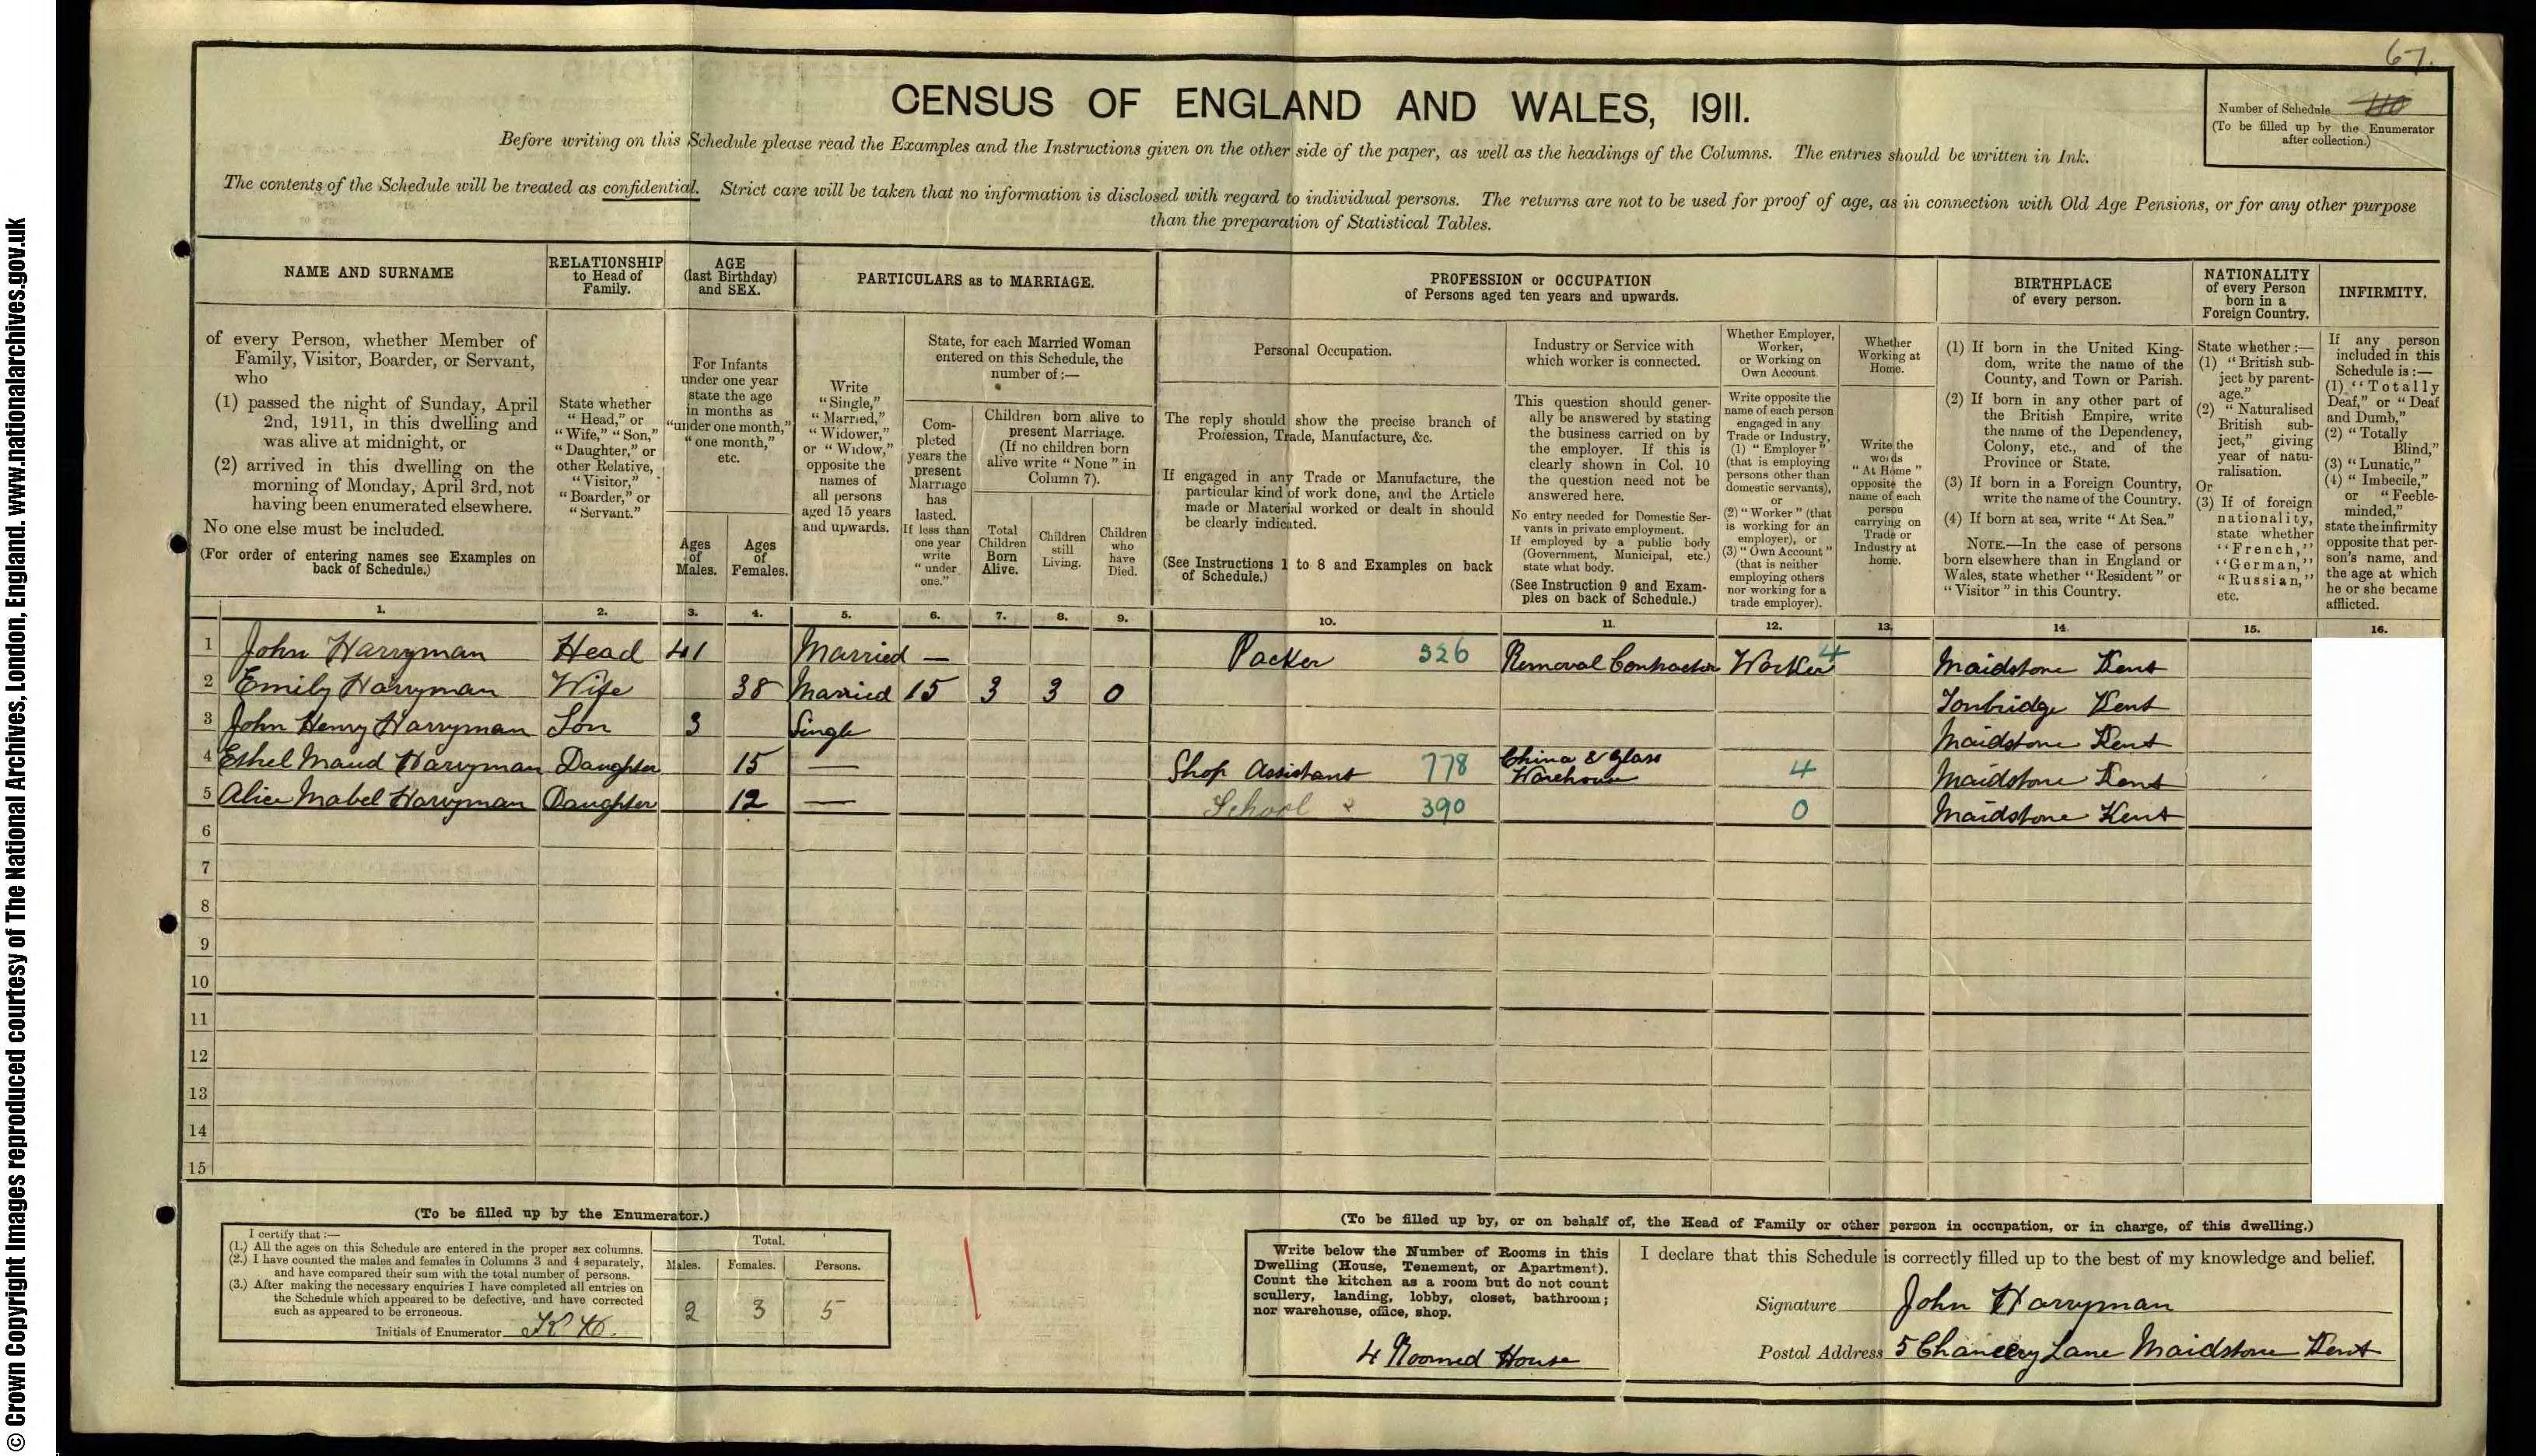 © Crown Copyright Images reproduced courtesy of The National Archives, London, England. www.nationalarchives.gov.uk
67.
CENSUS OF ENGLAND AND WALES, 1911.
Number of Schedule 110
(To be filled up by the Enumerator
after collection.)
Before writing on this Schedule please read the Examples and the Instructions given on the other side of the paper, as well as the headings of the Columns. The entries should be written in Ink.
The contents of the Schedule will be treated as confidential. Strict care will be taken that no information is disclosed with regard to individual persons. The returns are not to be used for proof of age, as in connection with Old Age Pensions, or for any other purpose
than the preparation of Statistical Tables.
NAME AND SURNAME
of every Person, whether Member of
Family, Visitor, Boarder, or Servant,
who
(1) passed the night of Sunday, April
2nd, 1911, in this dwelling and
was alive at midnight, or
(2) arrived in this dwelling on the
morning of Monday, April 3rd, not
having been enumerated elsewhere.
No one else must be included.
(For order of entering names see Examples on
back of Schedule.)
RELATIONSHIP
to Head of
Family.
State whether
"Head," or
"Wife," "Son,"
"Daughter," or
other Relative,
"Visitor,"
"Boarder," or
"Servant."
AGE
(last Birthday)
and SEX.
For Infants
under one year
state the age
in months as
"under one month,"
"one month,"
etc.
Ages
of
Males.
Ages
of
Females.
PARTICULARS as to MARRIAGE.
Write
"Single,"
"Married,"
"Widower,"
or "Widow,"
opposite the
names of
all persons
aged 15 years
and upwards.
State, for each Married Woman
entered on this Schedule, the
number of:—
Com-
pleted
years the
present
Marriage
has
lasted.
If less than
one year
write
"under
one."
Children born alive to
present Marriage.
(If no children born
alive write "None" in
Column 7).
Total
Children
Born
Alive.
Children
still
Living.
Children
who
have
Died.
PROFESSION or OCCUPATION
of Persons aged ten years and upwards.
Personal Occupation.
The reply should show the precise branch of
Profession, Trade, Manufacture, &c.
If engaged in any Trade or Manufacture, the
particular kind of work done, and the Article
made or Material worked or dealt in should
be clearly indicated.
(See Instructions 1 to 8 and Examples on back
of Schedule.)
Industry or Service with
which worker is connected.
This question should gener-
ally be answered by stating
the business carried on by
the employer. If this is
clearly shown in Col. 10
the question need not be
answered here.
No entry needed for Domestic Ser-
vants in private employment.
If employed by a public body
(Government, Municipal, etc.)
state what body.
(See Instruction 9 and Exam-
ples on back of Schedule.)
Whether Employer,
Worker,
or Working on
Own Account.
Write opposite the
name of each person
engaged in any
Trade or Industry,
(1) "Employer"
(that is employing
persons other than
domestic servants),
or
(2) "Worker" (that
is working for an
employer), or
(3) "Own Account"
(that is neither
employing others
nor working for a
trade employer).
Whether
Working at
Home.
Write the
words
"At Home"
opposite the
name of each
person
carrying on
Trade or
Industry at
home.
BIRTHPLACE
of every person.
(1) If born in the United King-
dom, write the name of the
County, and Town or Parish.
(2) If born in any other part of
the British Empire, write
the name of the Dependency,
Colony, etc., and of the
Province or State.
(3) If born in a Foreign Country,
write the name of the Country.
(4) If born at sea, write "At Sea."
NOTE.—In the case of persons
born elsewhere than in England or
Wales, state whether "Resident" or
"Visitor" in this Country.
NATIONALITY
of every Person
born in a
Foreign Country.
State whether :—
(1) "British sub-
ject by parent-
age."
(2) "Naturalised
British sub-
ject," giving
year of natu-
ralisation.
Or
(3) If of foreign
nationality,
state whether
"French,"
"German,"
"Russian,"
etc.
INFIRMITY.
If any person
included in this
Schedule is :—
(1) "Totally
Deaf," or "Deaf
and Dumb,"
(2) "Totally
Blind,"
(3) "Lunatic,"
(4) "Imbecile,"
or "Feeble-
minded,"
state the infirmity
opposite that per-
son's name, and
the age at which
he or she became
afflicted.
1. 2. 3. 4. 5. 6. 7. 8. 9. 10. 11. 12. 13. 14. 15. 16.
1 John Harryman Head 41 Married — Packer 526 Removal Contractor Worker 4 Maidstone Kent
2 Emily Harryman Wife 38 Married 15 3 3 0 Tonbridge Kent
3 John Henry Harryman Son 3 Single Maidstone Kent
4 Ethel Maud Harryman Daughter 15 — Shop Assistant 778 China & Glass Warehouse 4 Maidstone Kent
5 Alice Mabel Harryman Daughter 12 — School 390 0 Maidstone Kent
6
7
8
9
10
11
12
13
14
15
(To be filled up by the Enumerator.)
I certify that :—
(1.) All the ages on this Schedule are entered in the proper sex columns.
(2.) I have counted the males and females in Columns 3 and 4 separately,
and have compared their sum with the total number of persons.
(3.) After making the necessary enquiries I have completed all entries on
the Schedule which appeared to be defective, and have corrected
such as appeared to be erroneous.
Initials of Enumerator
Total.
Males. Females. Persons.
2 3 5
(To be filled up by, or on behalf of, the Head of Family or other person in occupation, or in charge, of this dwelling.)
Write below the Number of Rooms in this
Dwelling (House, Tenement, or Apartment).
Count the kitchen as a room but do not count
scullery, landing, lobby, closet, bathroom;
nor warehouse, office, shop.
4 Roomed House
I declare that this Schedule is correctly filled up to the best of my knowledge and belief.
Signature John Harryman
Postal Address 5 Chancery Lane Maidstone Kent